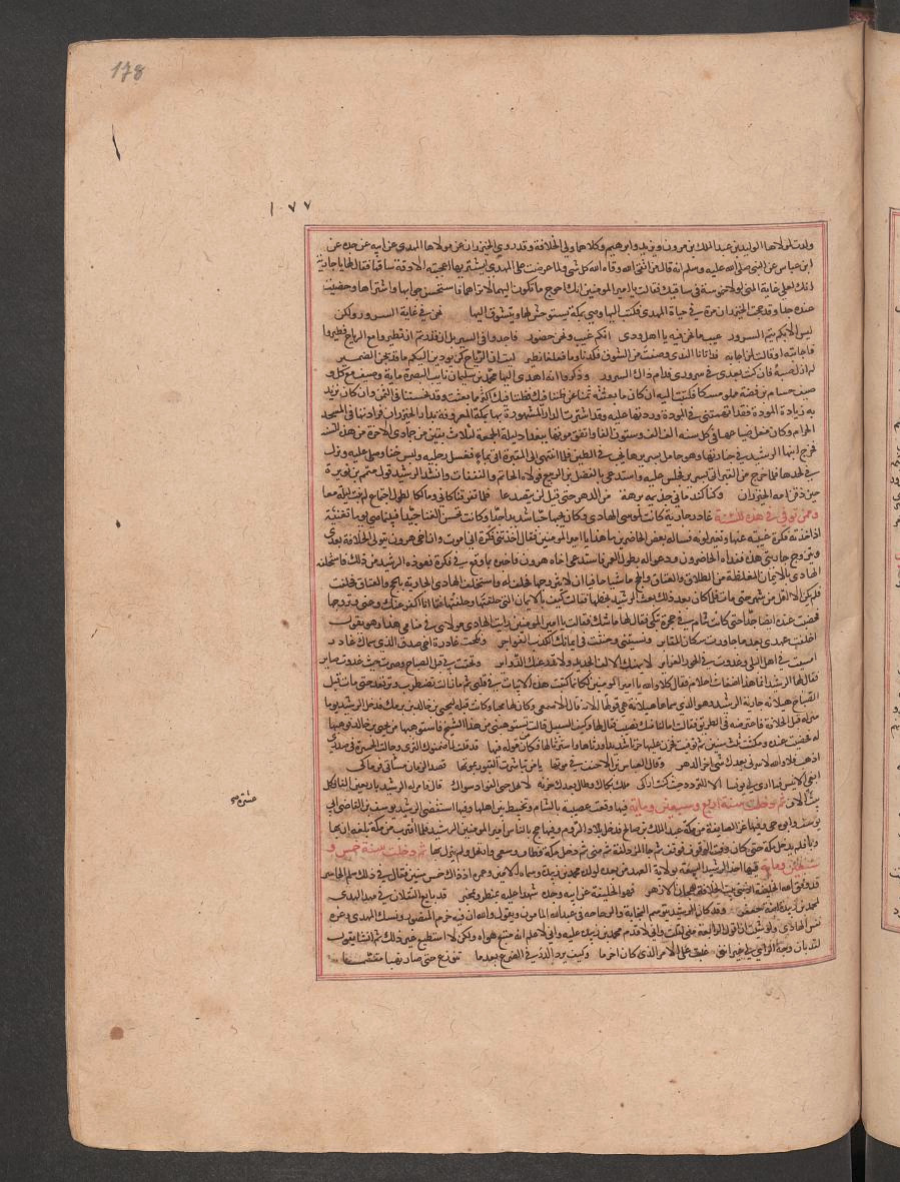 178
١٠٧٧
ولدت لمولاها الوليد بن عبد الملك بن مروان ويزيد وابرهيم وكلاهما ولي الخلافة وقد روي الخيزران عن مولاها المهدي عن ابيه عن جده عن
ابن عباس عن النبي صلى الله عليه وسلم انه قال من اتقى الله وقاه الله كل شي ولما عرضت على المهدي ليشتريها اعجبته الا دقة ساقيها فقال لها يا جارية
انك لعلى غاية المنى لولا خموشة في ساقيك فقالت يا امير المومنين انك احوج ما تكون اليهما لا تراهما فاستحسن جوابها واشتراها وحظيت
عنده جدا وقد حجت الخيزران مرة في حياة المهدي فكتب اليها وهي بمكة يستوحش لها ويتشوق اليها نحن في غاية السرور ولكن
ليس الا بكم يتم السرور عيب ما نحن فيه يا اهل ودي انكم غيب ونحن حضور فاجدوا في السير بل ان قدرتم ان تطيروا مع الرياح فطيروا
فاجابته او قالت لمن اجابه قد اتانا الذي وصفت من الشوق فكدنا وما فعلنا نطير ليت ان الرياح كن يودين اليكم ما قد يجن الضمير
لم ازل صبة فان كنت بعدي في سرور فدام ذاك السرور وذكروا انه اهدى اليها محمد بن سليمان نايب البصرة ماية وصيف مع كل و
صيف جام من فضة مملو مسكا فكتبت اليه ان كان ما بعثته ثمنا عن ظننا فيك فظننا فيك اكثر مما بعثت وقد بخستنا في الثمن وان كان تريد
به زيادة المودة فقد اتهمتني في المودة وردتها عليه وقد اشترت الدار المشهورة بها بمكة المعروفة بدار الخيزران فزادتها في المسجد
الحرام وكان مغل ضياعها في كل سنة الف الف وستون الفا واتفق موتها ببغداد ليلة الجمعة لثلاث بقين من جمادى الاخرة من هذه السنة
فخرج ابنها الرشيد في جنازتها وهو حامل سريرها يخب في الطين فلما انتهى الى المقبرة اتي بماء فغسل رجليه ولبس خفا وصلى عليها ونزل
في لحدها فلما خرج من القبر اتي بسرير فجلس عليه واستدعى بالفضل بن الربيع فولاه الخاتم والنفقات وانشد الرشيد قول متمم بن نويرة
حين دفن امه الخيزران وكنا كندماني جذيمة برهة من الدهر حتى قيل لن يتصدعا فلما تفرقنا كاني ومالكا لطول اجتماع لم نبت ليلة معا
وممن توفي في هذه السنة غادر جارية كانت لموسى الهادي وكان يحبها حبا شديدا جدا وكانت تحسن الغنا جيدا فبينما هي يوما تغنيه
اذ اخذته فكرة غيبته عنها وتغير لونه فساله بعض الحاضرين ما هذا يا امير المومنين فقال اخذتني فكرة اني اموت وان اخي هرون يتولى الخلافة بعدي
ويتزوج جاريتي هذه ففداه الحاضرون ودعوا له بطول العمر فاستدعى اخاه هرون فاخبره بما وقع في فكره فعوذه الرشيد من ذلك فاستحلفه
الهادي بالايمان المغلظة من الطلاق والعتاق والحج ماشيا حافيا ان لا يتزوجها فحلف له واستحلف الهادي الجارية بالحج والعتاق فحلفت
فلم يكن الا اقل من شهر حتى مات فلما كان بعد ذلك بعث الرشيد يخطبها فقالت كيف بالايمان التي حلفتها وحلفتها فقال انا اكفر عنك وعني وتزوجها
فحظيت عنده ايضا جدا حتى كانت تنام في حجره تبكي فقال لها ما شانك فقالت يا امير المومنين رايت الهادي مولاي في منامي هذا وهو يقول
اخلفت عهدي بعد ما جاورت سكان المقابر ونسيتني وحنثت في ايمانك الكذب الفواجر ونكحت غادرة اخي صدق الذي سماك غادر
امسيت في اهل البلى وغدوت في الحور الغراير لا يهنك الالف الجديد ولا تدر عنك الدواير ولحقت بي قبل الصباح وصرت حيث غدوت صاير
فقال لها الرشيد انما هذا اضغاث احلام فقال كلا والله يا امير المومنين لكانما كتبت هذه الابيات في قلبي ثم ما زالت تضطرب وترتعد حتى ماتت قبل
الصباح هيلانة جارية الرشيد وهو الذي سماها هيلانة
منزله قبل الخلافة فاعترضته في الطريق فقالت اما لنا فيك نصيب فقال لها وكيف السبيل قالت تستوهبني من هذا الشيخ فاستوهبها من يحيى بن خالد فوهبها
له فحظيت عنده ومكثت ثلث سنين ثم توفيت فحزن عليها حزنا شديدا ورثاها فكان قوله فيها قد قلت لما ضمنوك الثرى وجالت الحسرة في صدري
اذهب فلا والله لا سرني بعدك شي اخر الدهر وقال العباس بن الاحنف في موتها يا من تباشرت القبور بموتها قصد الزمان مساتي فرماك
ابغي الانيس فما ارى لي يونسا الا التردد حيث كنت اراك ملك بكاك وطال بعدك حزنه قال فامر له الرشيد باربعين الفا لكل
بيت الاف ثم دخلت سنة اربع وسبعين وماية فيها وقعت عصبية بالشام وتخبيط بين اهلها وفيها استقضى الرشيد يوسف بن القاضي ابي
يوسف وابي حي وفيها غزى الصايفة عبد الملك بن صالح فدخل بلاد الروم وفيها حج بالناس امير المومنين الرشيد فلما اقترب من مكة بلغه ان بها
وبا فلم يدخل مكة حتى كان وقت الوقوف فوقف ثم جا المزدلفة ثم منى ثم دخل مكة فطاف وسعى وارتحل ولم ينزل بها ثم دخلت سنة خمس و
سبعين وماية فيها اخذ الرشيد البيعة بولاية العهد من بعده لولده محمد بن زبيدة وسماه الامين وعمره اذ ذاك خمس سنين فقال في ذلك سلم الخاسر
قد وفق الله الخليفة اذ بنى بيت الخلافة للهجان الازهر فهو الخليفة عن ابيه وجده شهدا عليه بمنظر ومخبر قد بايع الثقلان في مهد الهدى
لمحمد بن زبيدة ابنة جعفر وقد كان الرشيد يتوسم النجابة والرجاحة في عبد الله المامون ويقول والله ان فيه حزم المنصور ونسك المهدي وعزة
نفس الهادي ولو شئت ان اقول الرابعة مني لقلت واني لاقدم محمد بن زبيدة عليه واني لاعلم انه متبع هواه ولكن لا استطيع غير ذلك ثم انشا يقول
لقد بان وجه الراي لي غير انني غلبت على الامر الذي كان احزما وكيف يرد الدر في الضرع بعدما توزع حتى صار نهبا مقسما